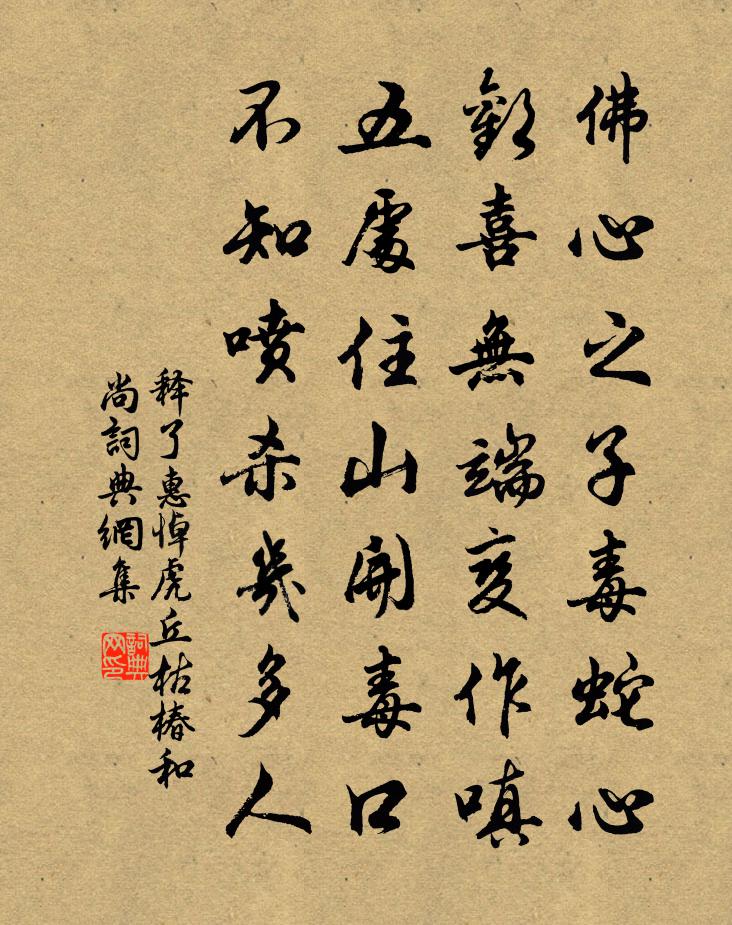 佛心之子毒蛇心
歡喜無端变作嗔
五處住山開毒口
不知喷杀幾多人
释了惠悼虎丘枯椿和
尚詞典網集
詞典网印